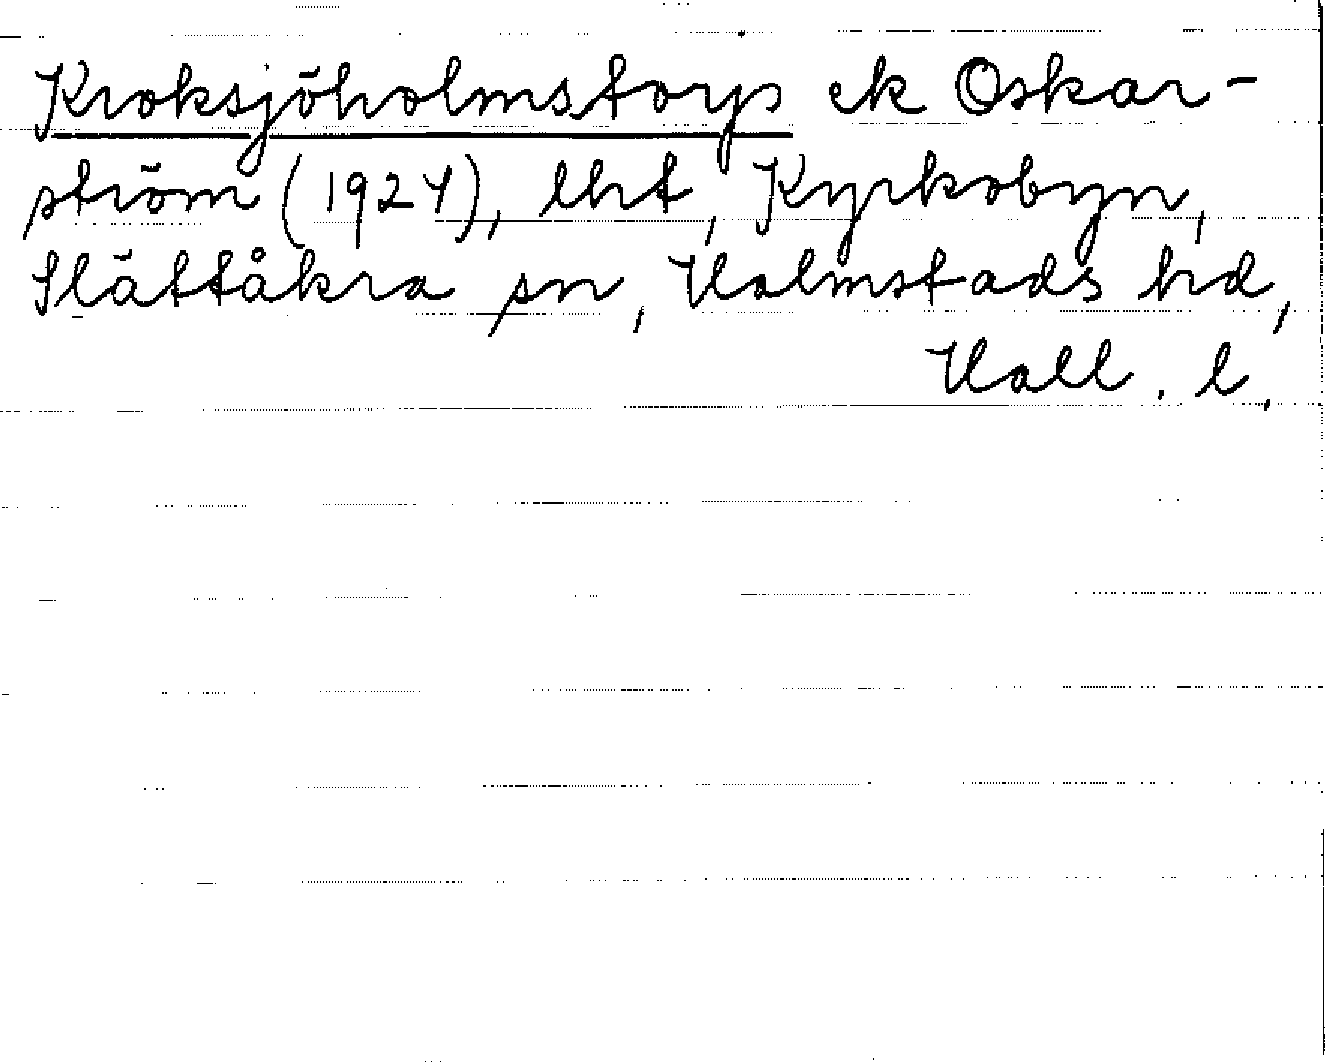 Kroksjöholmstorps ek Oskar-
ström (1924), lht, Kyrkobyn,
Slättåkra sn, Halmstads hd,
Hall. l.